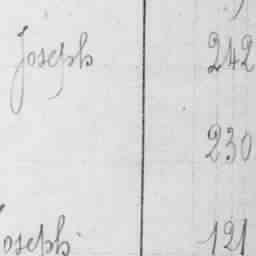 Joseph 242
230
Joseph 121